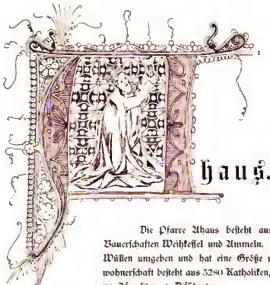 haus.
Die Pfarre Ahaus besteht aus
Bauerschaften Weihkessel und Ammeln.
Wüllen umgeben und hat eine Größe
wohnerschaft besteht aus 3280 Katholiken,